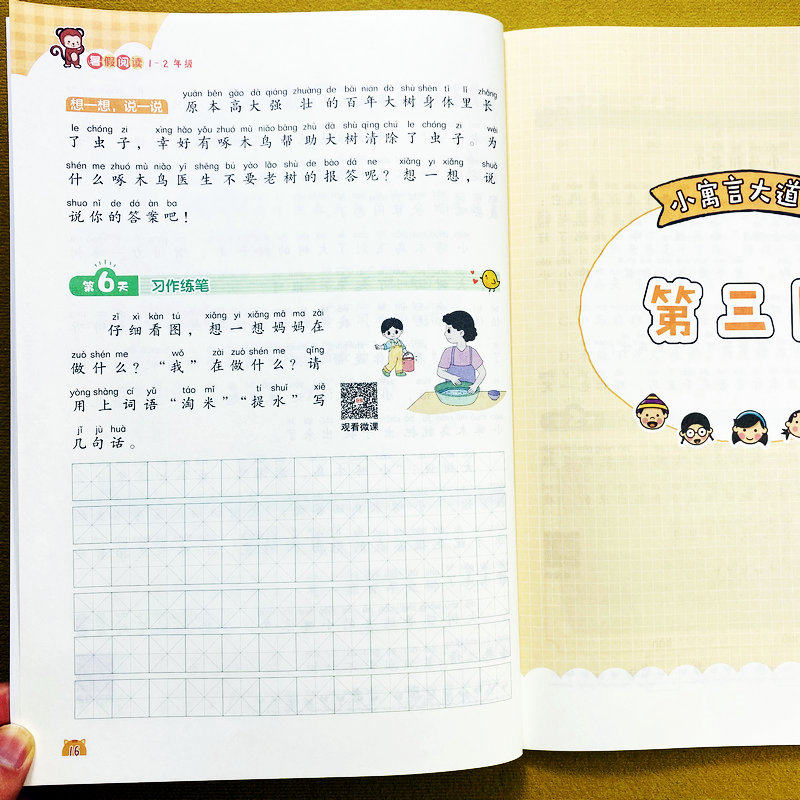 暑假阅读 1-2年级
yuán běn gāo dà qiáng zhuàng de bǎi nián dà shù shēn tǐ lǐ zhǎng
想一想，说一说 原本高大强 壮 的百年大树身体里长
le chóng zi xìng hǎo yǒu zhuó mù niǎo bāng zhù dà shù qīng chú le chóng zi wèi
了虫子，幸好有啄木鸟帮助大树清除了虫子。为
shén me zhuó mù niǎo yī shēng bú yào lǎo shù de bào dá ne xiǎng yi xiǎng shuō
什么啄木鸟医生不要老树的报答呢？想一想，说
shuo nǐ de dá àn ba
说你的答案吧！
第6天 习作练笔
zǐ xì kàn tú xiǎng yi xiǎng mā ma zài
仔细看图，想一想妈妈在
zuò shén me wǒ zài zuò shén me qǐng
做什么？“我”在做什么？请
yòng shàng cí yǔ táo mǐ tí shuǐ xiě
用上词语“淘米”“提水”写
jǐ jù huà
几句话。
观看微课
16
小寓言大道
第三